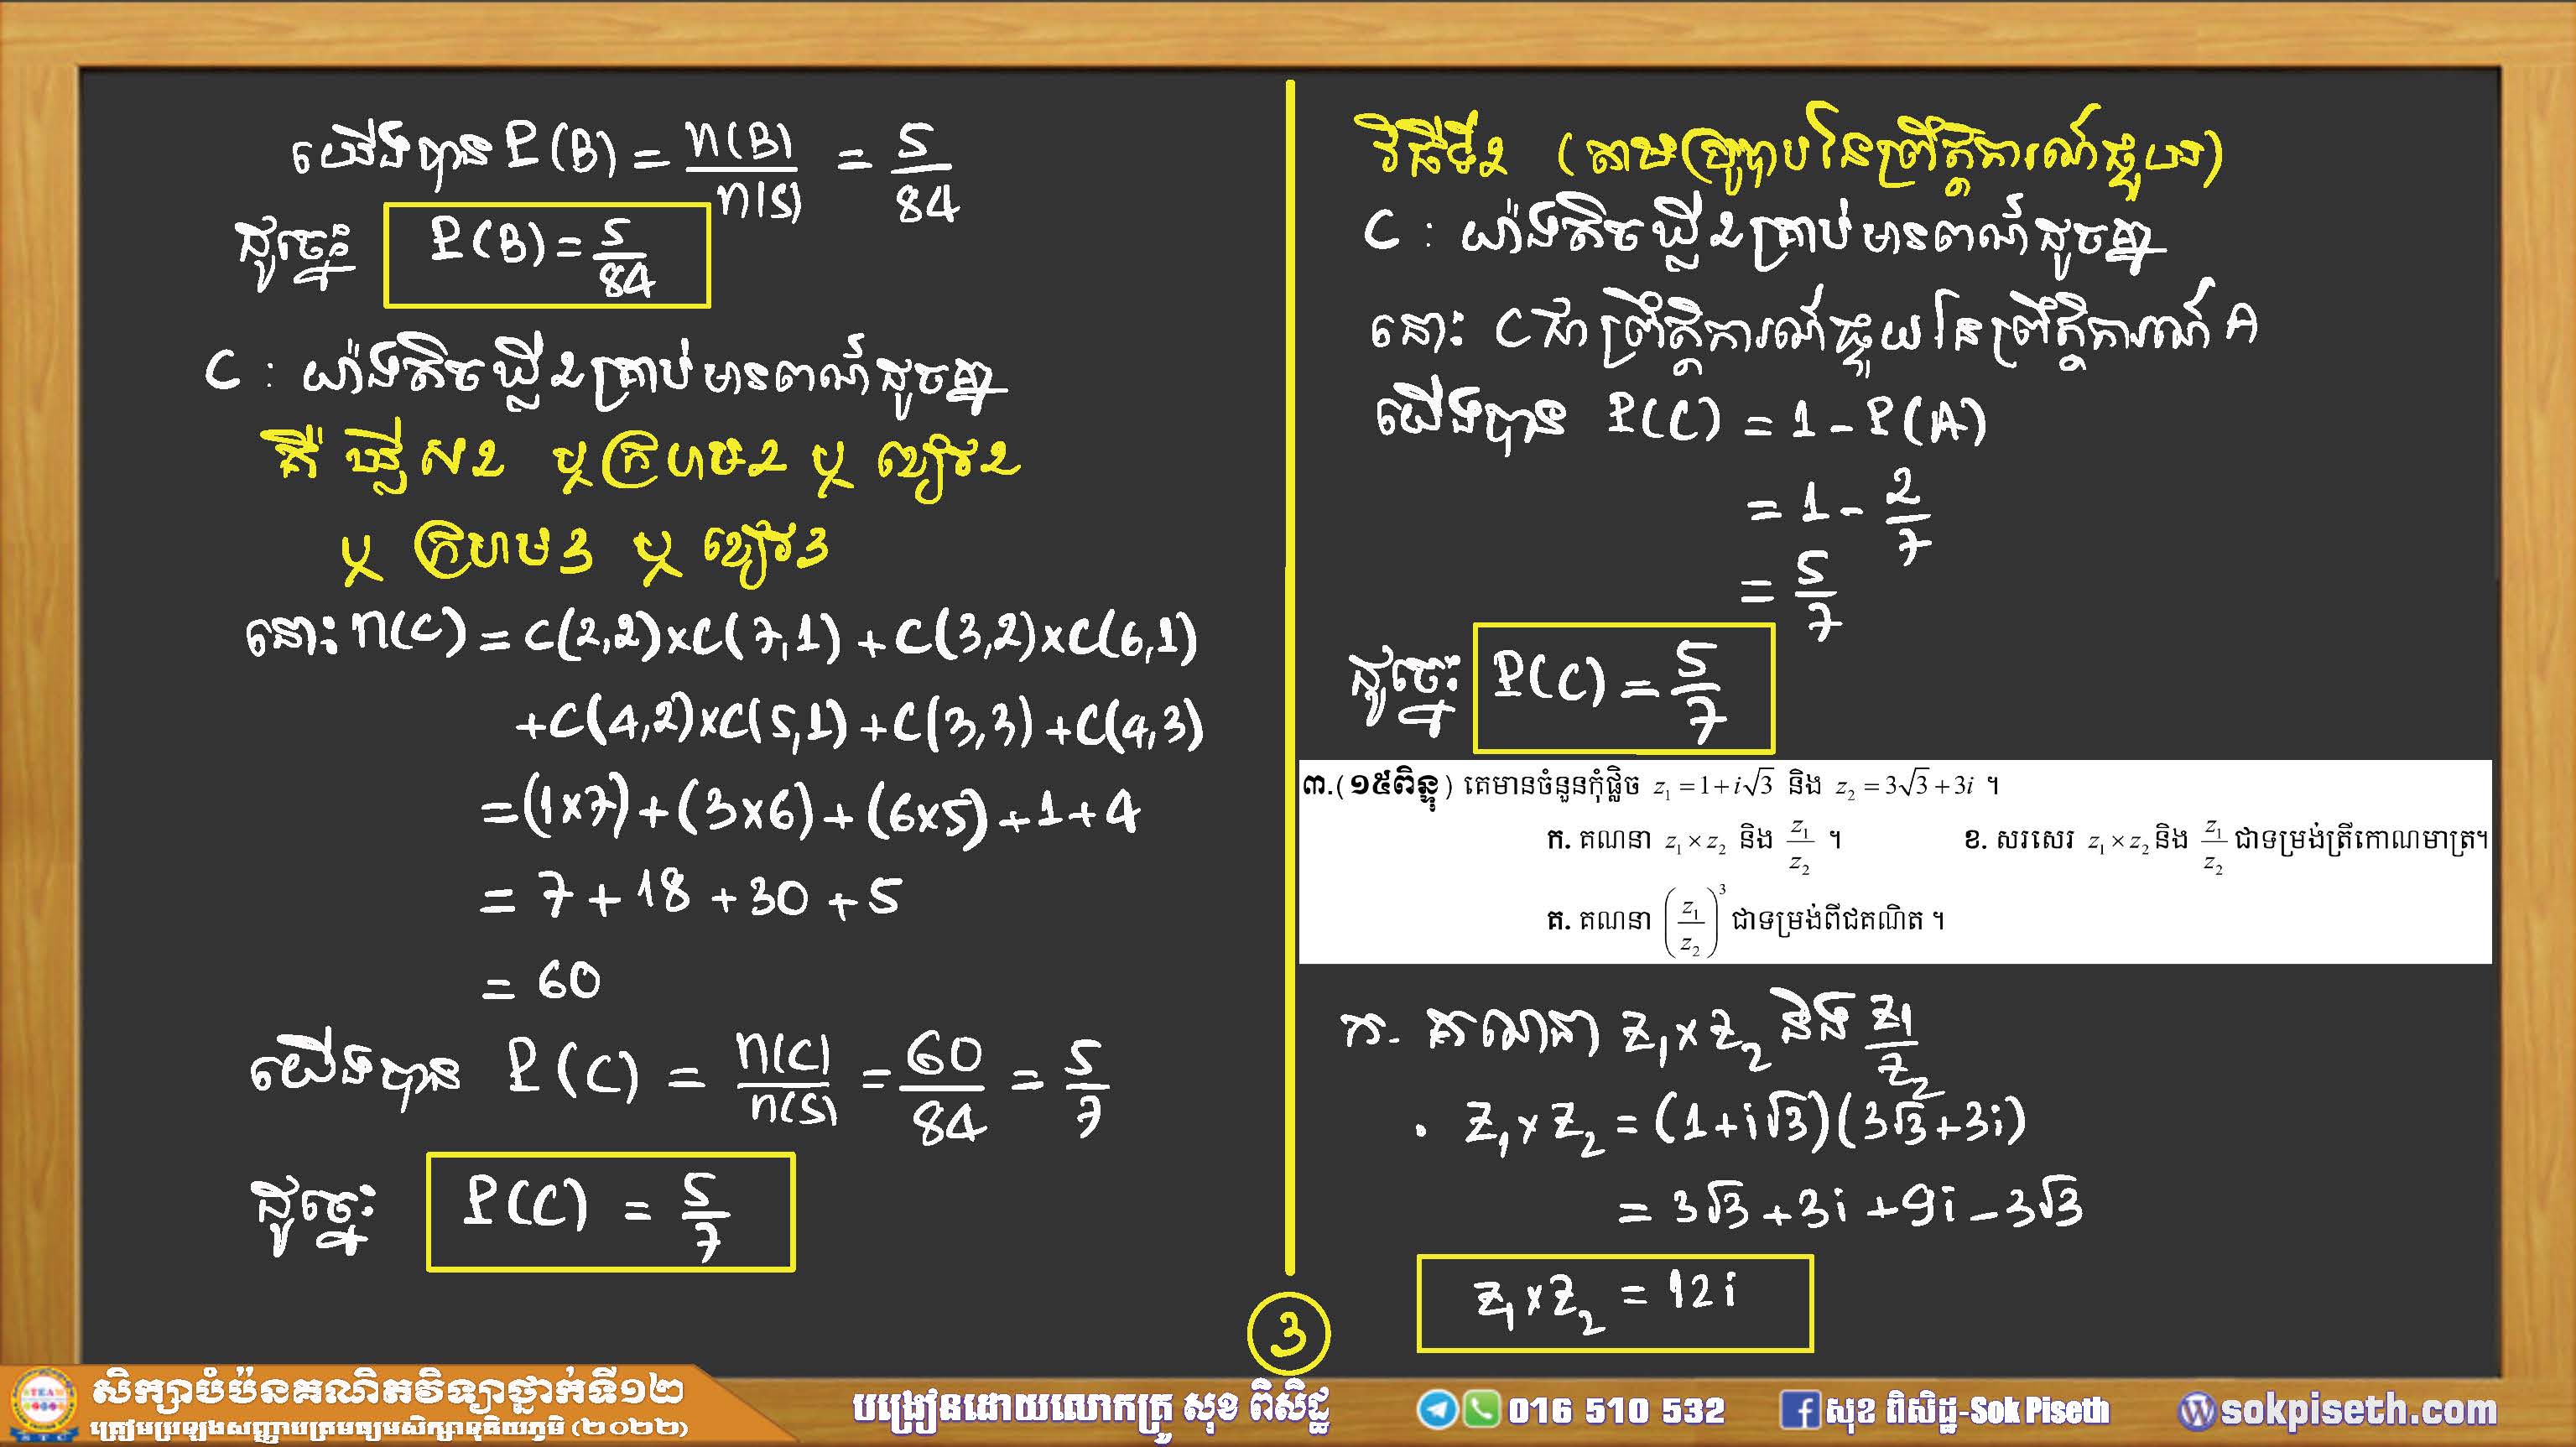 យើងបាន P(B) = n(B)/n(S) = 5/84
ដូចនេះ P(B) = 5/84
C : យ៉ាងតិចឃ្លី 2 គ្រាប់មានពណ៌ដូចគ្នា
គឺ ឃ្លីស 2 ឬ ក្រហម 2 ឬ ខៀវ 2
ឬ ក្រហម 3 ឬ ខៀវ 3
នោះ n(C) = C(2,2)×C(7,1) + C(3,2)×C(6,1)
+C(4,2)×C(5,1)+C(3,3)+C(4,3)
=(1×7)+(3×6)+(6×5)+1+4
= 7+18+30+5
= 60
យើងបាន P(C) = n(C)/n(S) = 60/84 = 5/7
ដូចនេះ P(C) = 5/7
វិធីទី2 (តាមប្រូបាបនៃព្រឹត្តិការណ៍ផ្ទុយ)
C : យ៉ាងតិចឃ្លី 2 គ្រាប់មានពណ៌ដូចគ្នា
នោះ C ជាព្រឹត្តិការណ៍ផ្ទុយនៃព្រឹត្តិការណ៍ A
យើងបាន P(C) = 1 - P(A)
= 1 - 2/7
= 5/7
ដូចនេះ P(C) = 5/7
៣.(១៥ពិន្ទុ) គេមានចំនួនកុំផ្លិច z₁ = 1+i√3 និង z₂ = 3√3+3i ។
ក. គណនា z₁×z₂ និង z₁/z₂ ។ ខ. សរសេរ z₁×z₂ និង z₁/z₂ ជាទម្រង់ត្រីកោណមាត្រ។
គ. គណនា (z₁/z₂)³ ជាទម្រង់ពីជគណិត ។
ក. គណនា z₁×z₂ និង z₁/z₂
• z₁×z₂ = (1+i√3)(3√3+3i)
= 3√3+3i+9i-3√3
z₁×z₂ = 12i
3
សិក្សាបំប៉នគណិតវិទ្យាថ្នាក់ទី១២
ត្រៀមប្រឡងសញ្ញាបត្រមធ្យមសិក្សាទុតិយភូមិ (២០២២)
បង្រៀនដោយលោកគ្រូ សុខ ពិសិដ្ឋ
016 510 532
សុខ ពិសិដ្ឋ-Sok Piseth
sokpiseth.com